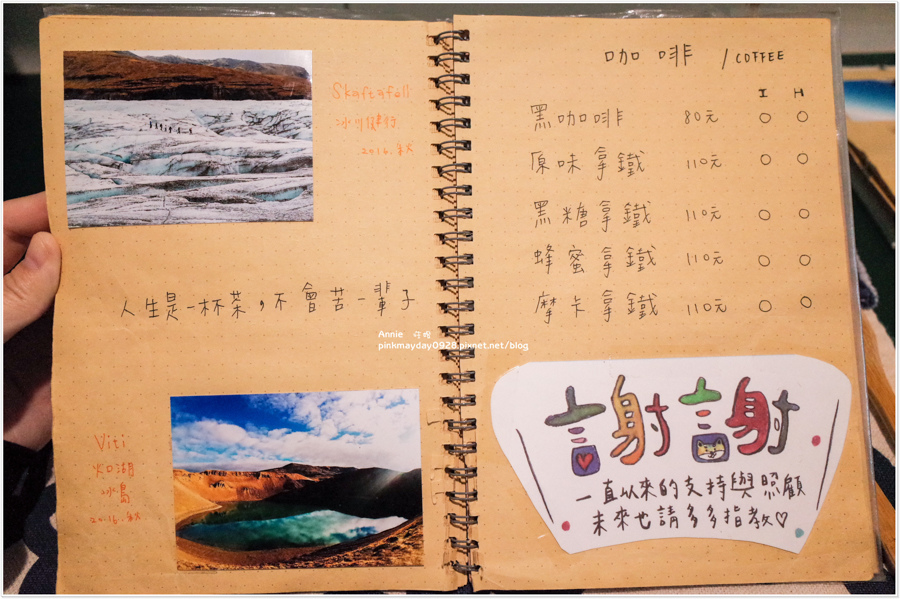 Skaftafell
冰川健行
2016.秋
人生是一杯茶，不會苦一輩子
Viti
火口湖
冰島
2016.秋
咖啡 / COFFEE
I H
黑咖啡 80元 ○ ○
原味拿鐵 110元 ○ ○
黑糖拿鐵 110元 ○ ○
蜂蜜拿鐵 110元 ○ ○
摩卡拿鐵 110元 ○ ○
謝謝
一直以來的支持與照顧
未來也請多多指教♡
Annie
pinkmayday0928.pixnet.net/blog